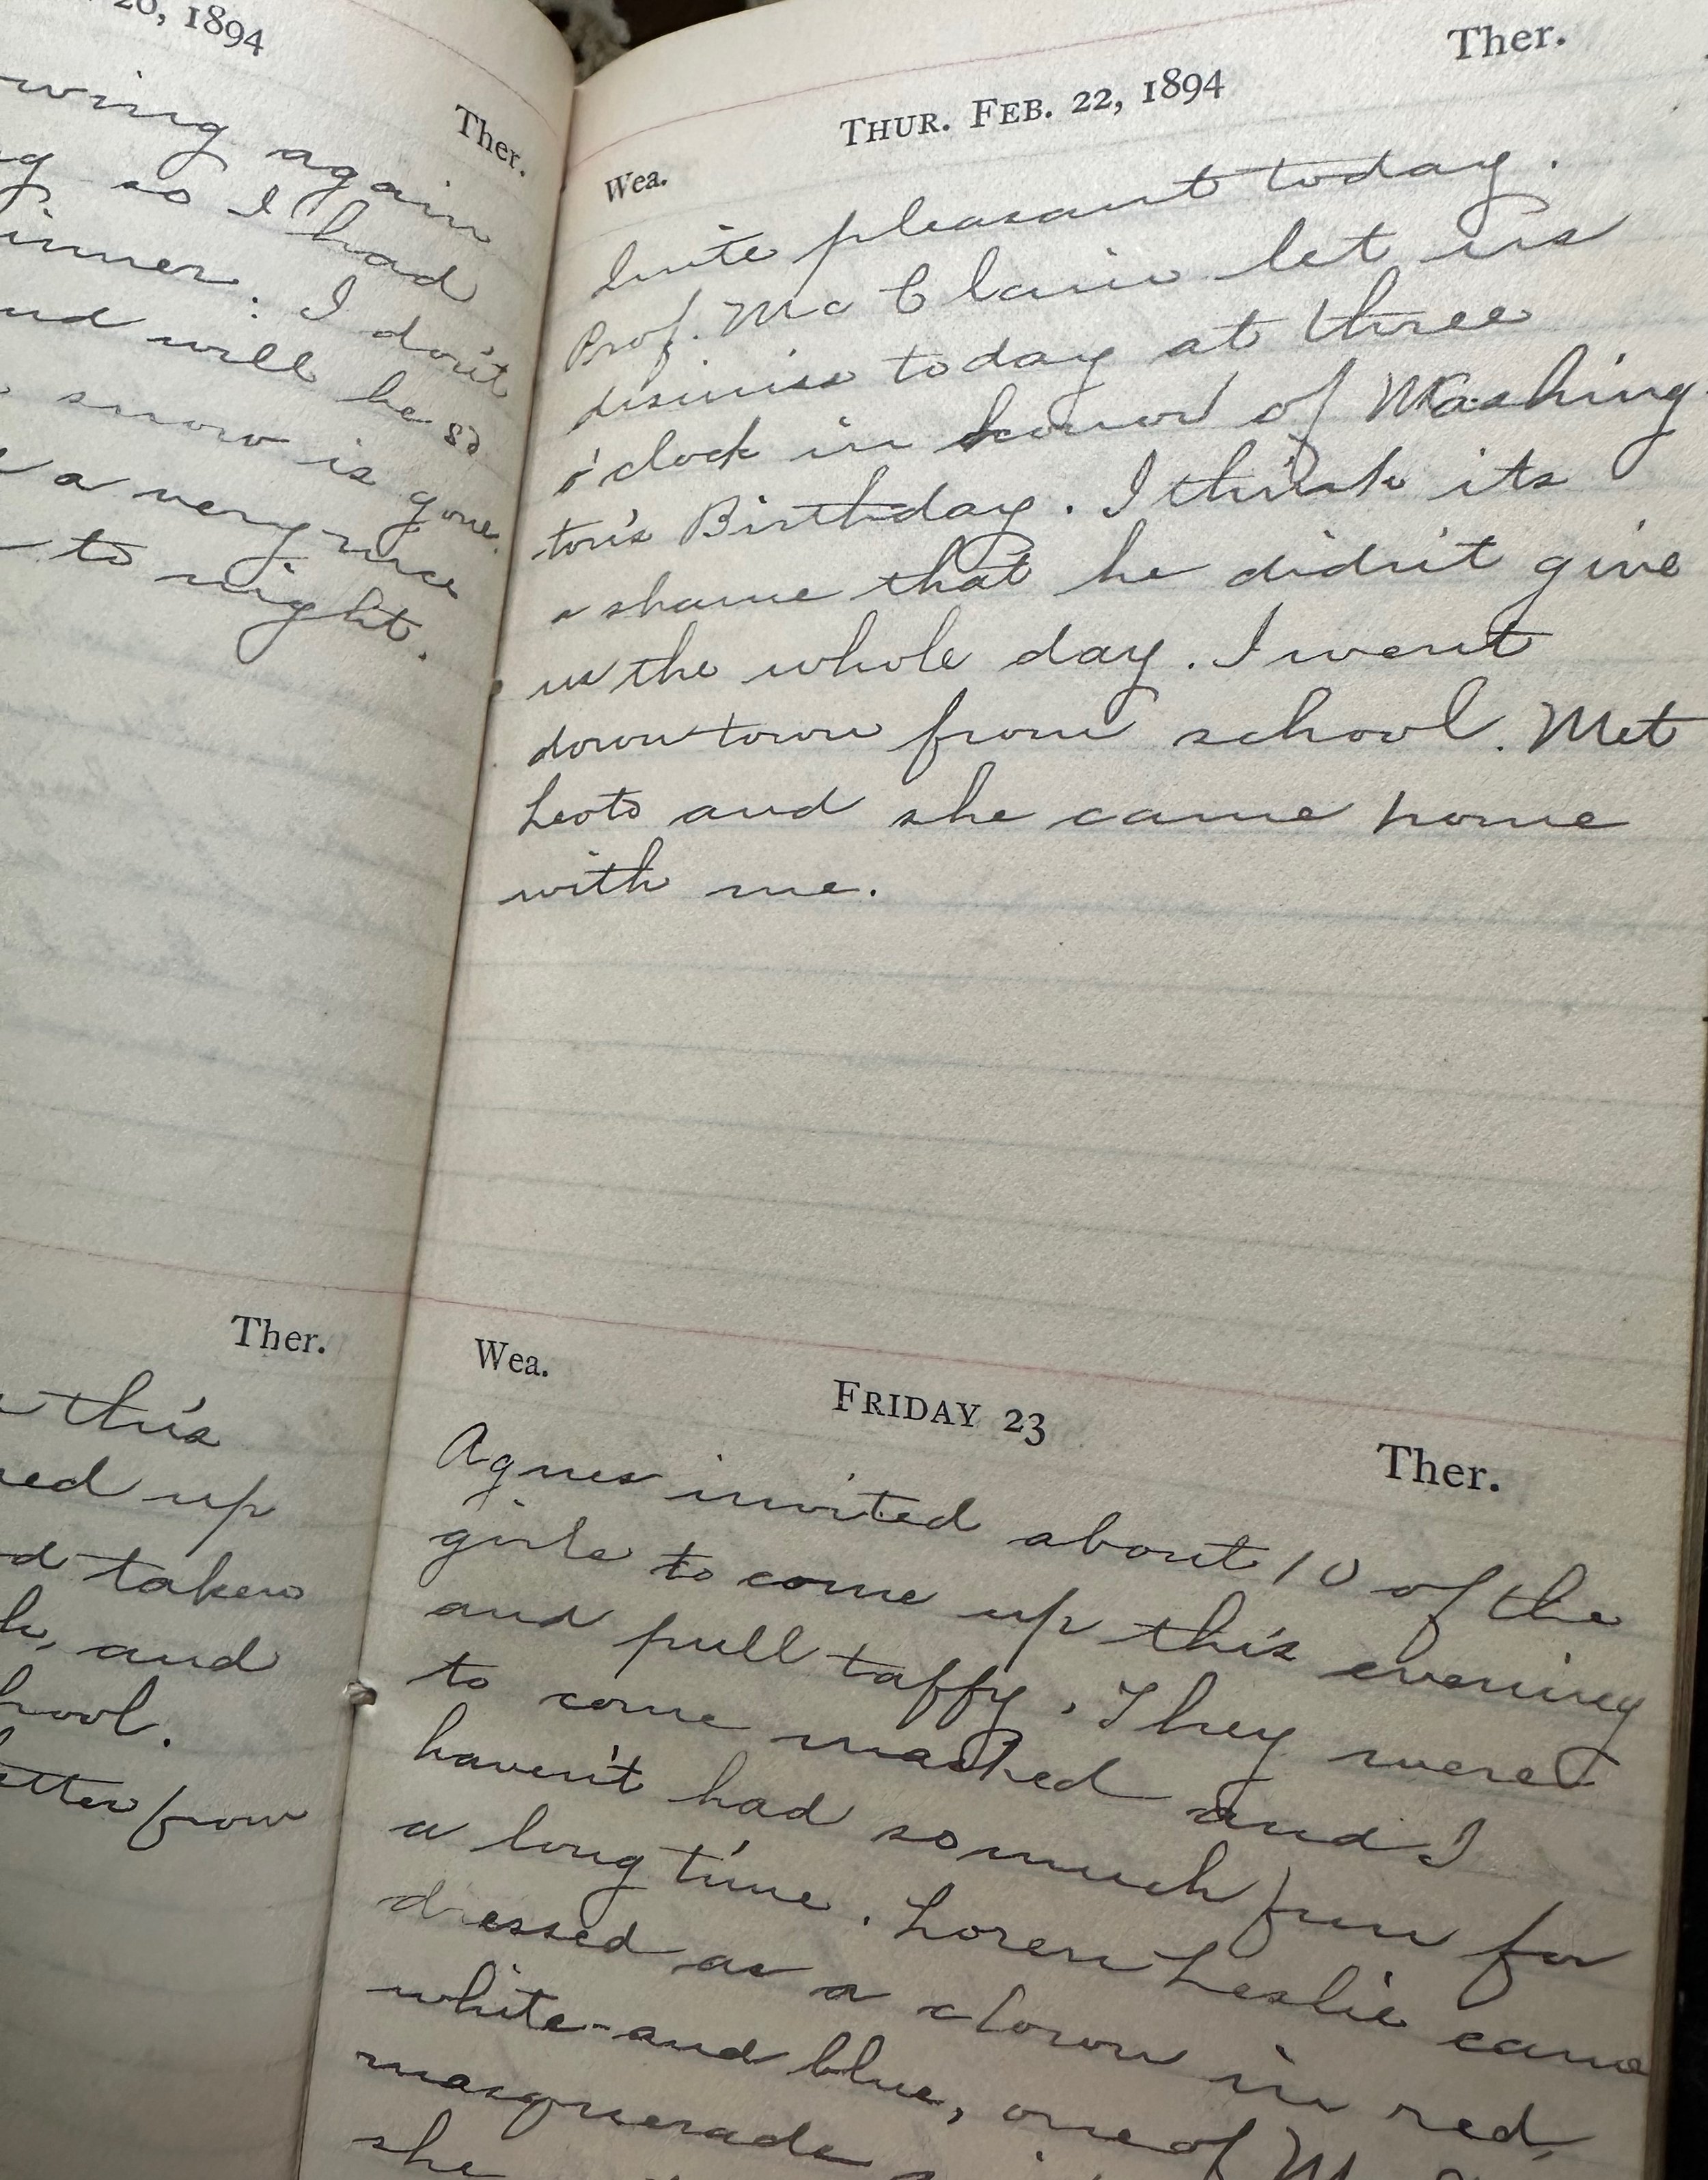 20, 1894
Ther.
wing again
g so I had
inner. I don't
nd will be so
snow is gone.
a very nice
to night.
Ther.
this
ed up
d taken
h, and
hool.
etter from
Thur. Feb. 22, 1894
Wea.
Ther.
Quite pleasant today.
Prof. McClain let us
dismiss today at three
o'clock in honor of Washing
ton's Birthday. I think its
a shame that he didn't give
us the whole day. I went
down town from school. Met
and she came home
with me.
Wea.
Friday 23
Ther.
Agnes invited about 10 of the
girls to come up this evening
and pull taffy. They were
to come masked and I
haven't had so much fun for
a long time. Loren Leslie came
dressed as a clown in red,
white-and blue, one of
masquerade
she